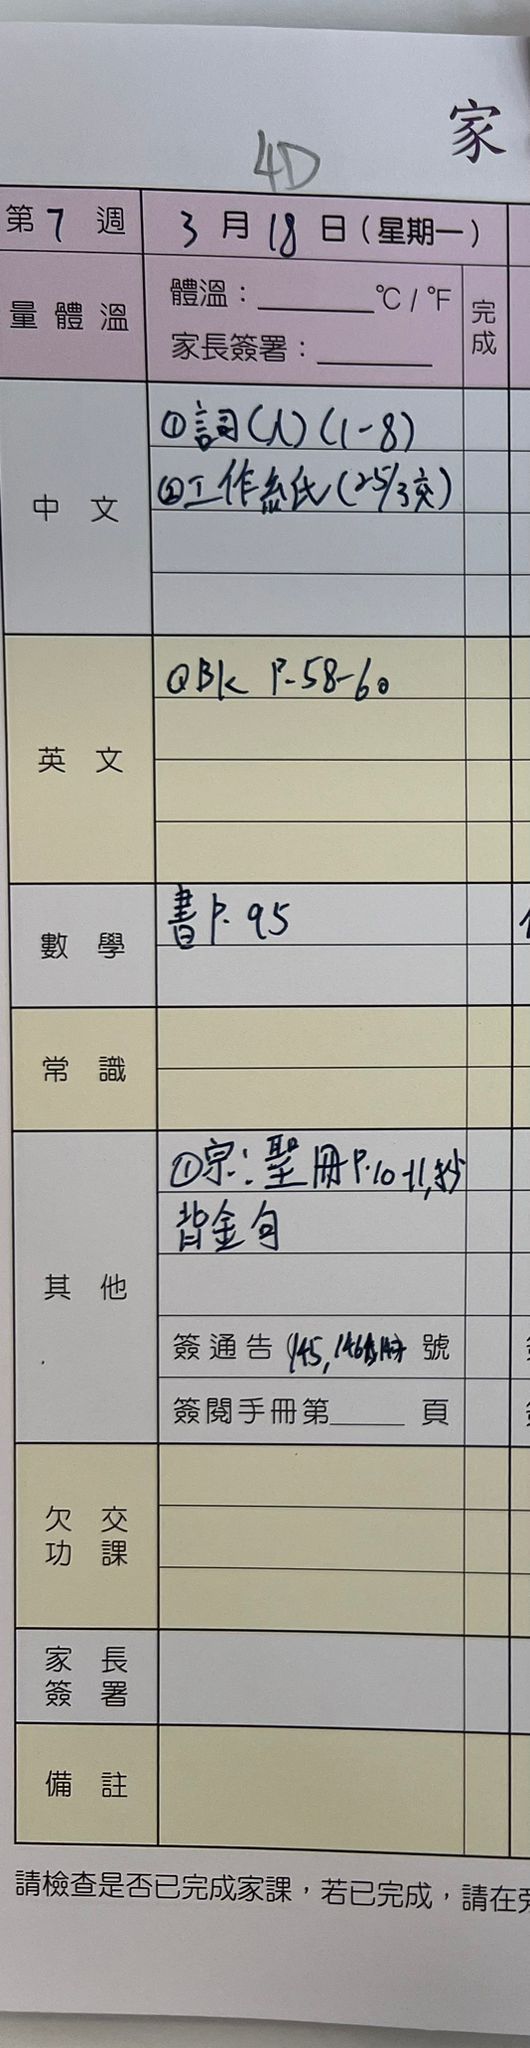 家
4D
第 7 週
3 月 18 日（星期一）
量體溫
體溫：______°C / °F
家長簽署：______
完成
中文
①詞(八)(1-8)
②工作紙(25/3交)
英文
QBK P.58-60
數學
書P.95
常識
其他
①宗:聖冊P.10-11,抄
背金句
簽通告 145, 146 號
簽閱手冊第____頁
欠交
功課
家長
簽署
備註
請檢查是否已完成家課，若已完成，請在